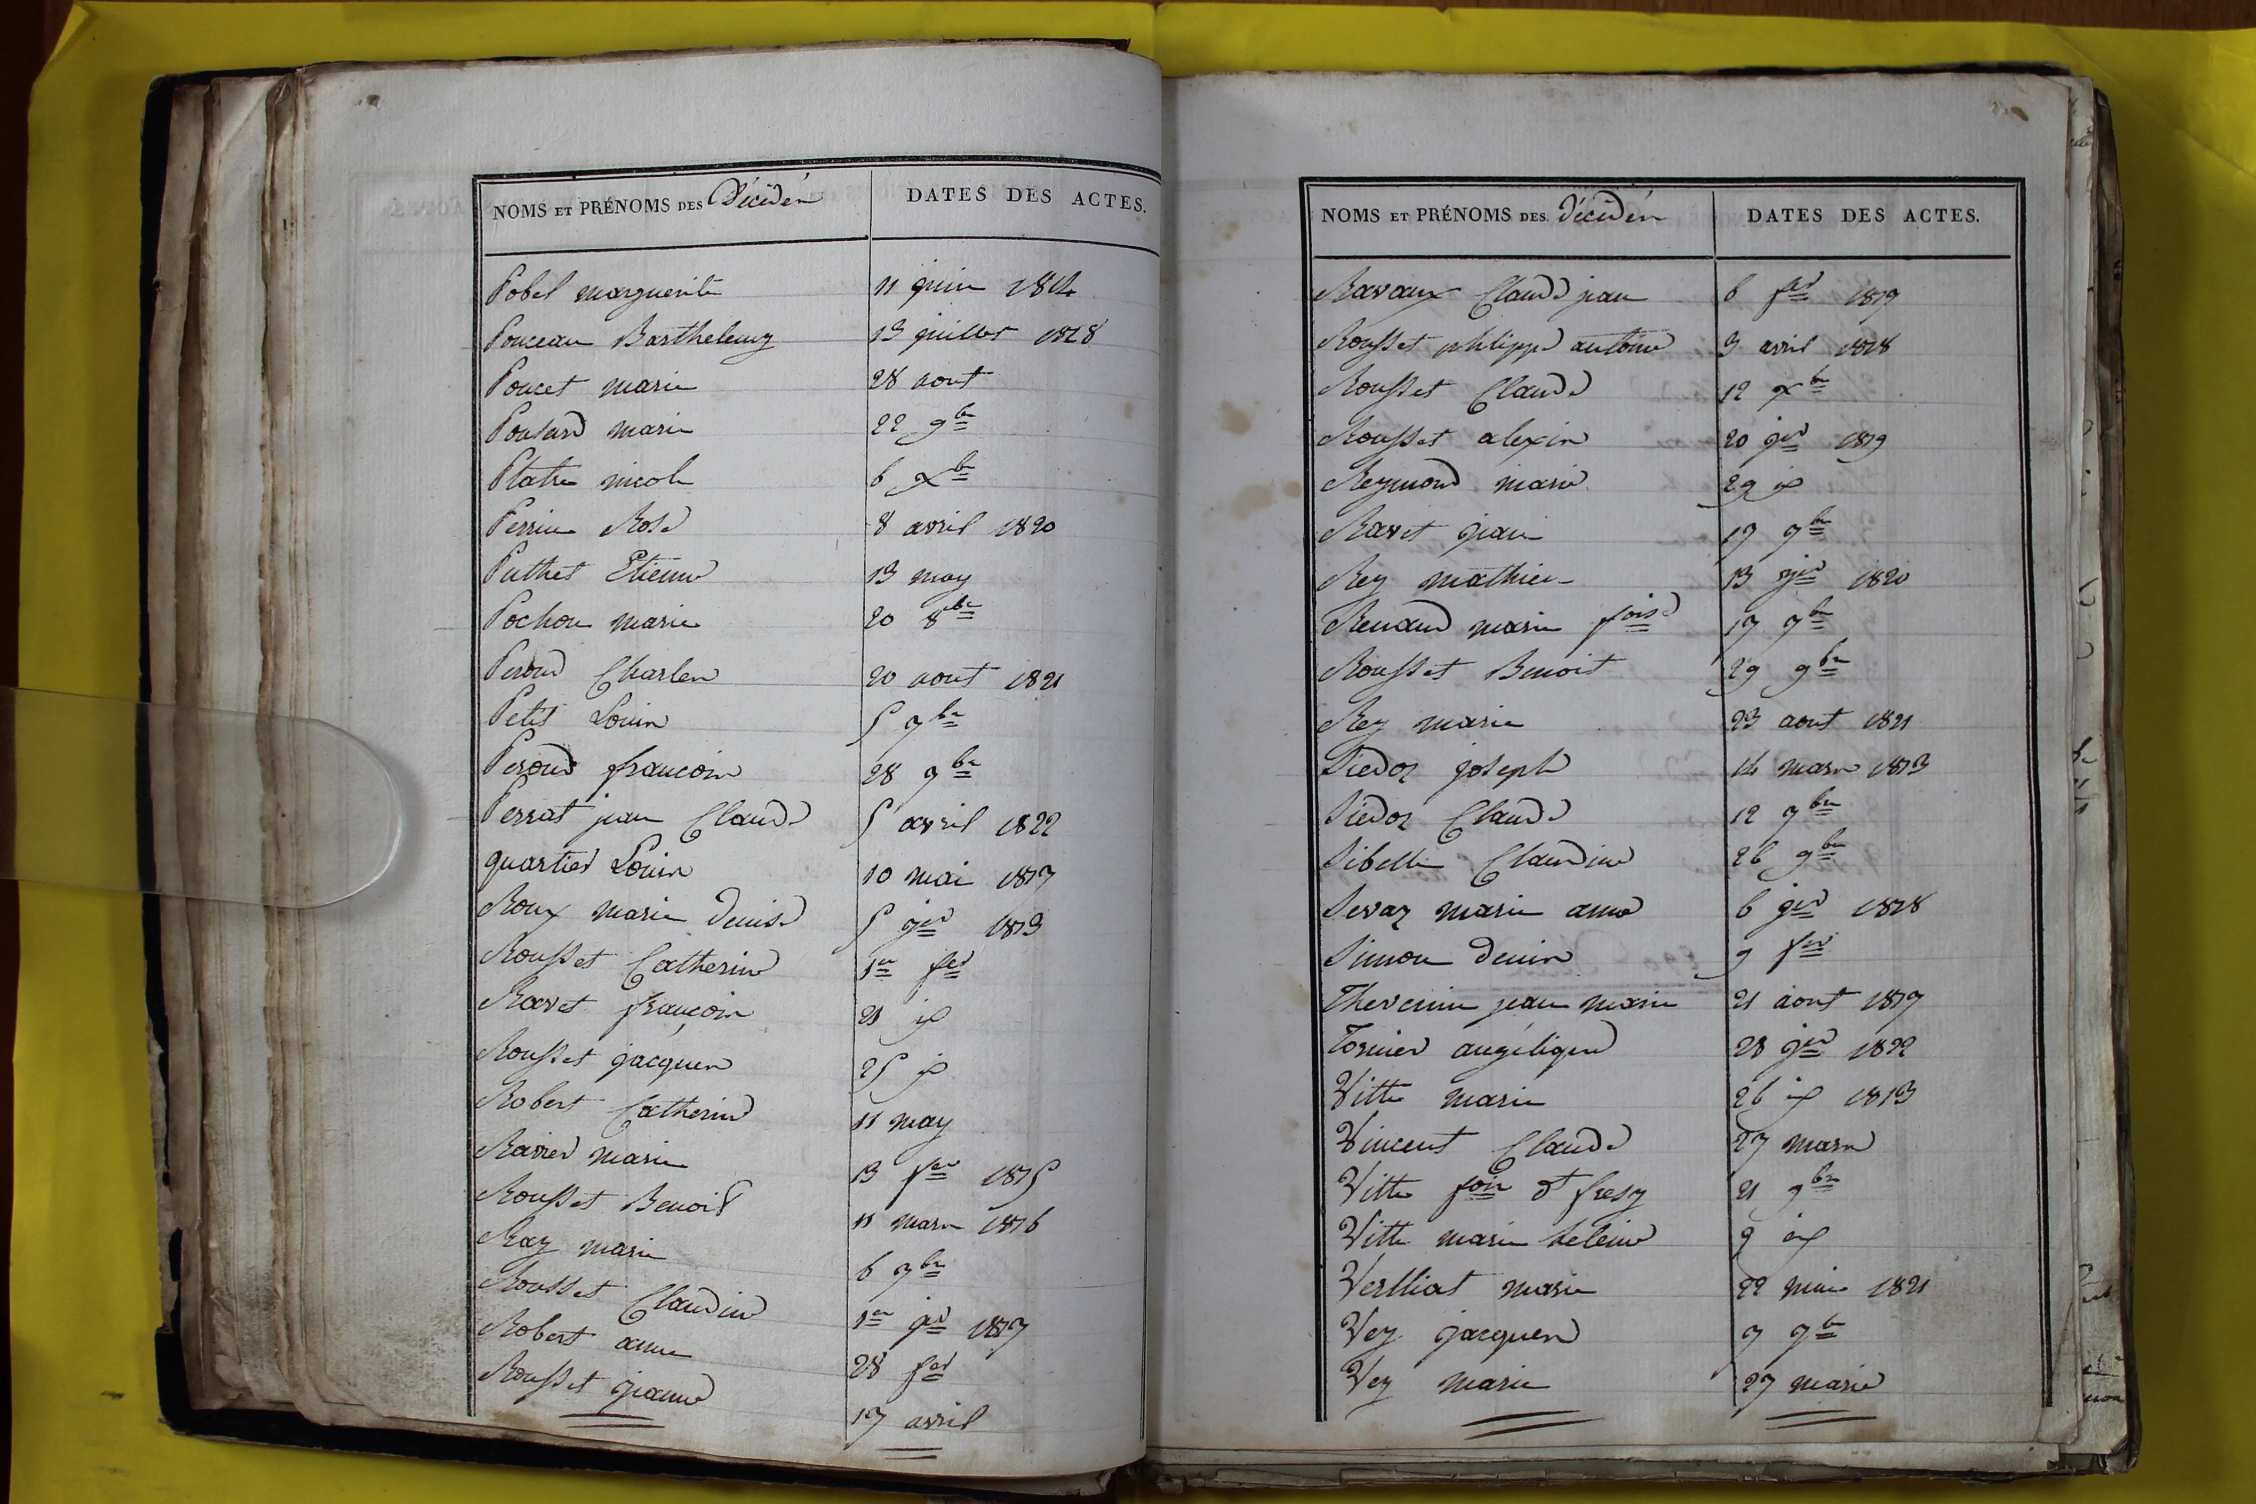 NOMS ET PRÉNOMS DES Décédés
DATES DES ACTES.
Pobel marguerite 11 juin 1814
Ponceau Barthelemy 13 juillet 1818
Poncet marie 28 aout
Ponsard marie 22 9bre
Platre nicole 6 xbre
Perrin Rose 8 avril 1820
Puthet Etienne 13 may
Pochon marie 20 8bre
Peroud Charles 20 aout 1821
Petit Louis 5 7bre
Peroud françois 28 9bre
Perrat jean Claude 5 avril 1822
quartier Louis 10 mai 1817
Roux marie Denise 5 jer 1813
Rousset Catherine 1er fer
Ravet françois 21 id
Rousset jacques 25 id
Robert Catherine 11 may
Ravier marie 13 fer 1815
Rousset Benoit 11 mars 1816
Ray marie 6 7bre
Rousset Claudine 1er jer 1817
Robert anne 28 fer
Rousset jeanne 17 avril
NOMS ET PRÉNOMS DES Décédés
DATES DES ACTES.
Ravaux Claude jean 6 fer 1819
Rousset philippe antoine 3 avril 1818
Rousset Claude 12 xbre
Rousset alexis 20 jer 1819
Reymond marie 29 id
Ravet jean 17 7bre
Rey mathieu 13 jer 1820
Renaud marie foise 17 7bre
Rousset Benoit 29 9bre
Rey marie 23 aout 1821
Siedoz joseph 14 mars 1813
Siedoz Claude 12 7bre
Sibelle Claudine 26 9bre
Sevaz marie anne 6 jer 1818
Simon denis 9 fer
Thevenin jean marie 21 aout 1817
Tornier angélique 28 jer 1822
Vitte marie 26 id 1813
Vincent Claude 27 mars
Vitte fois dt fresy 21 9bre
Vitte marie heleine 9 id
Verlliat marie 22 mai 1821
Vey jacques 7 7bre
Vey marie 27 marie